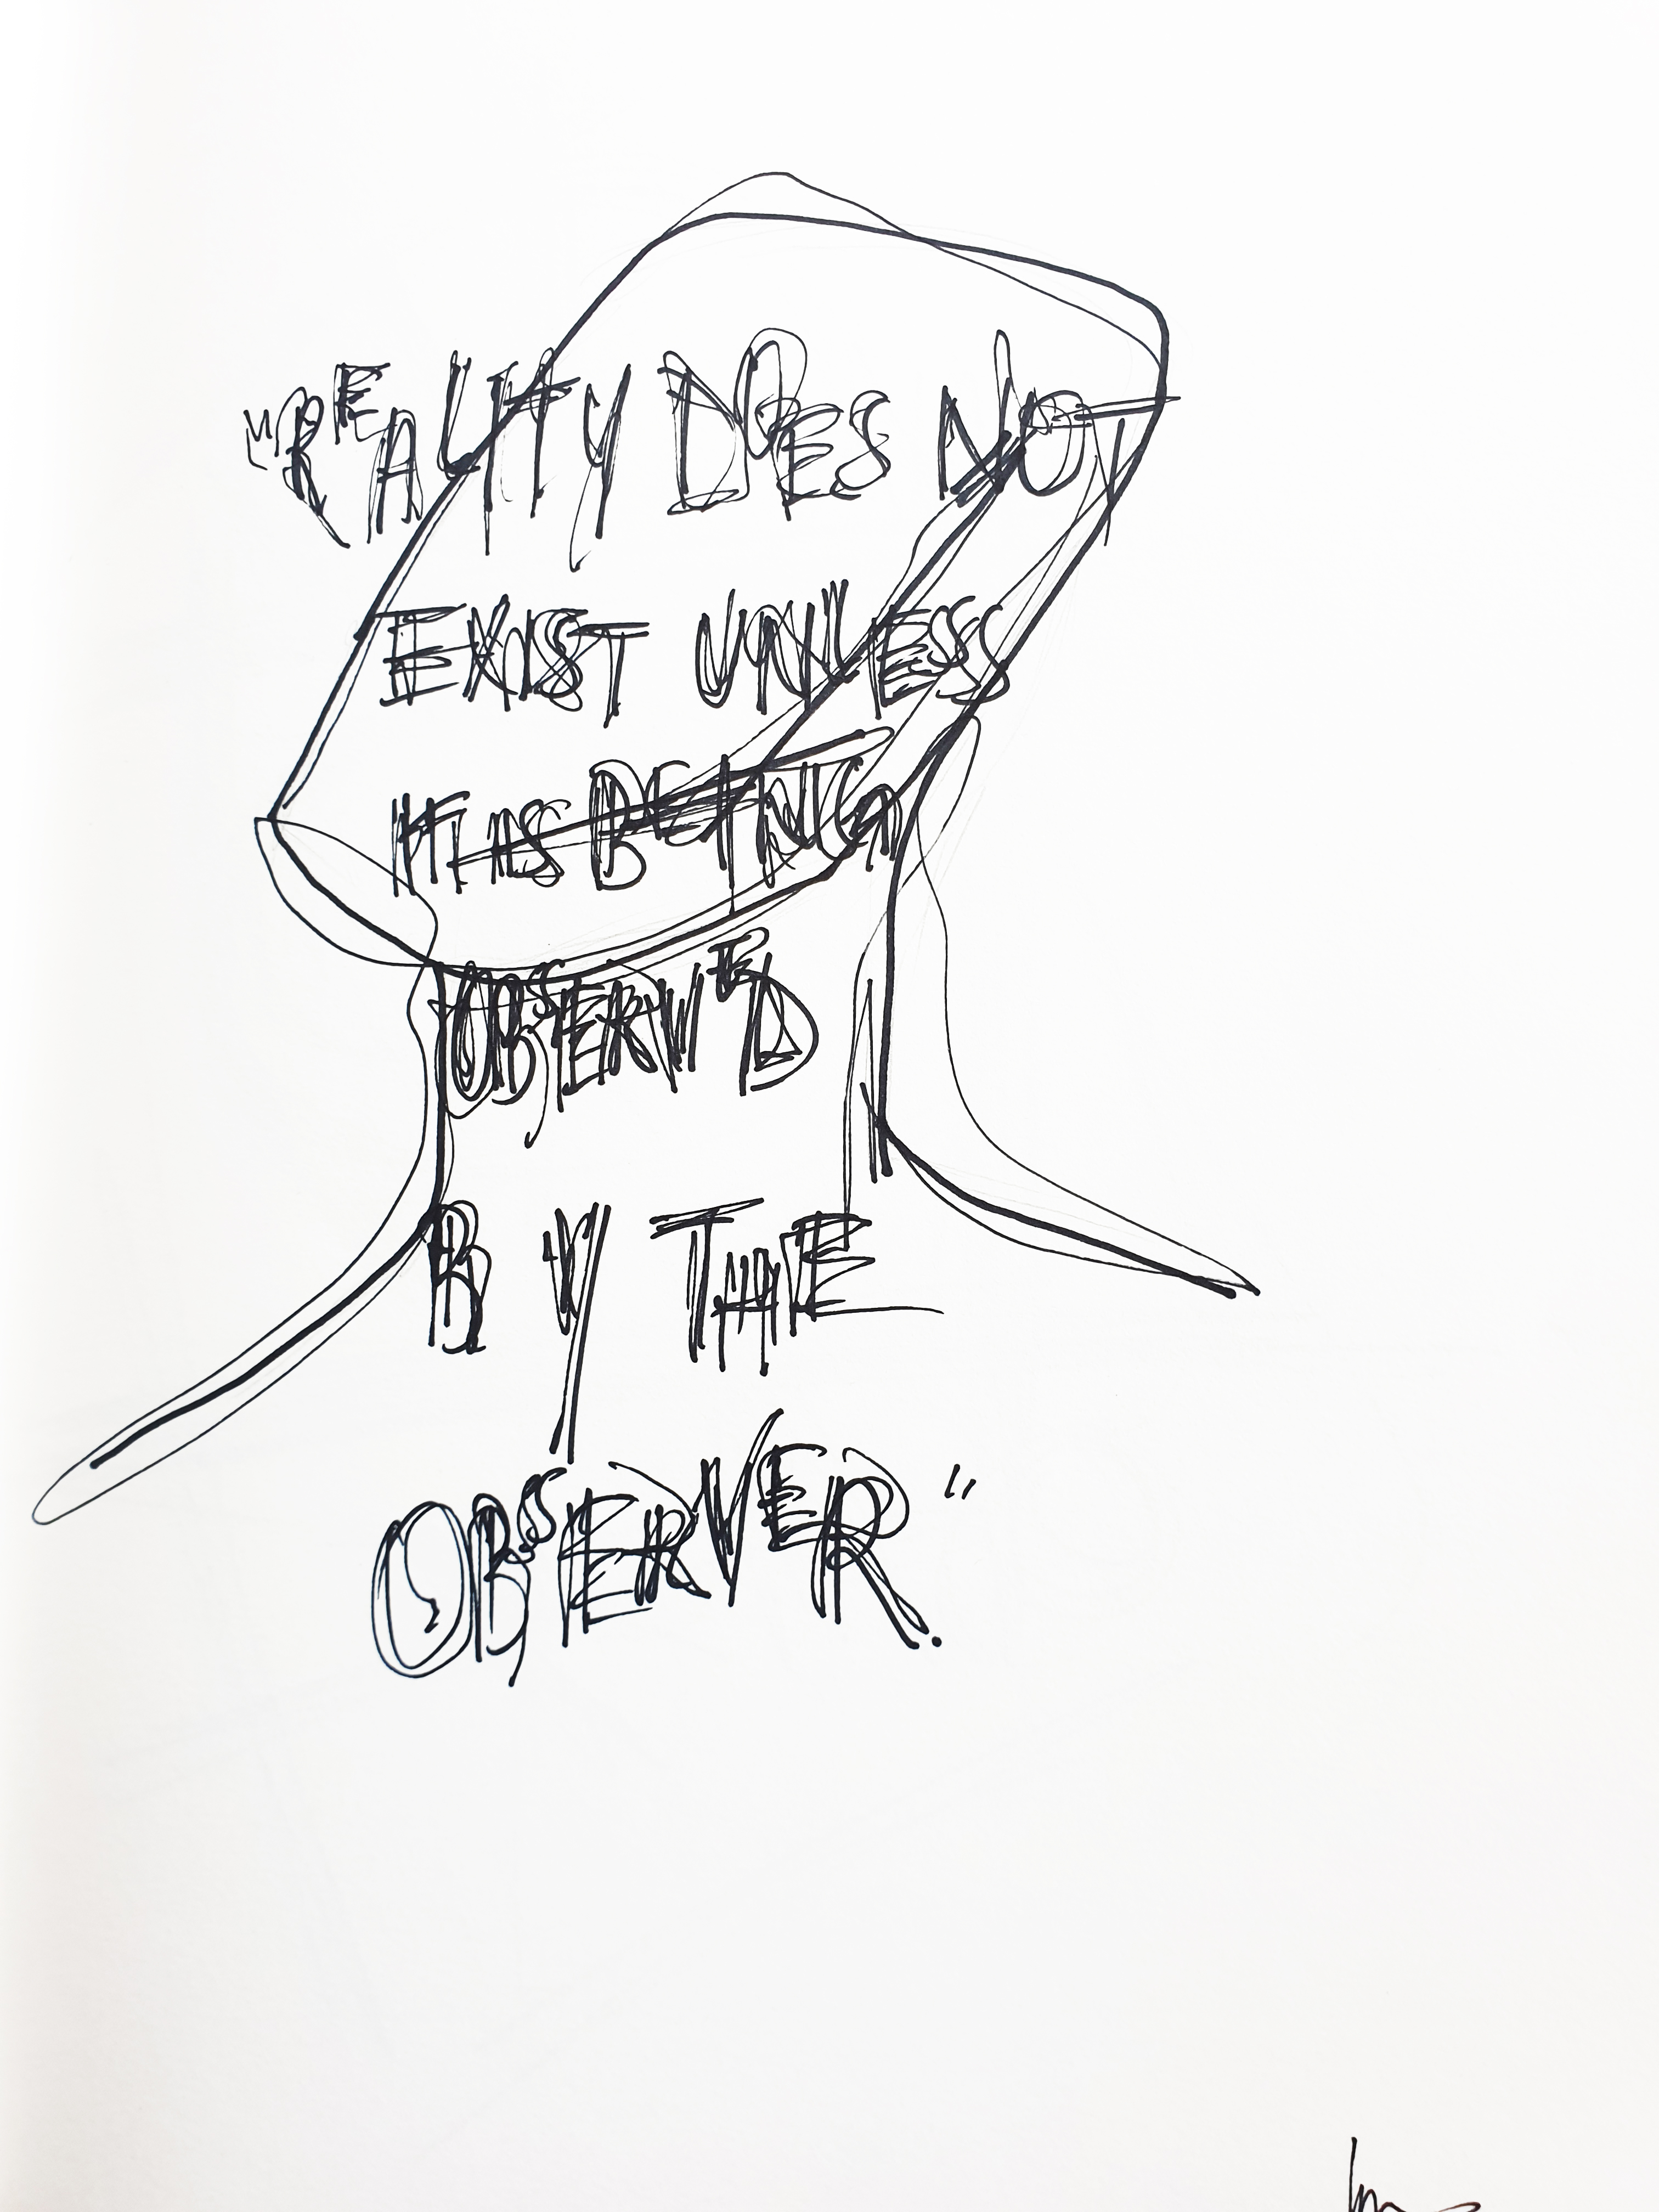 "REALITY DOES NOT
EXIST UNLESS
IT IS BEING
OBSERVED
BY THE
OBSERVER."